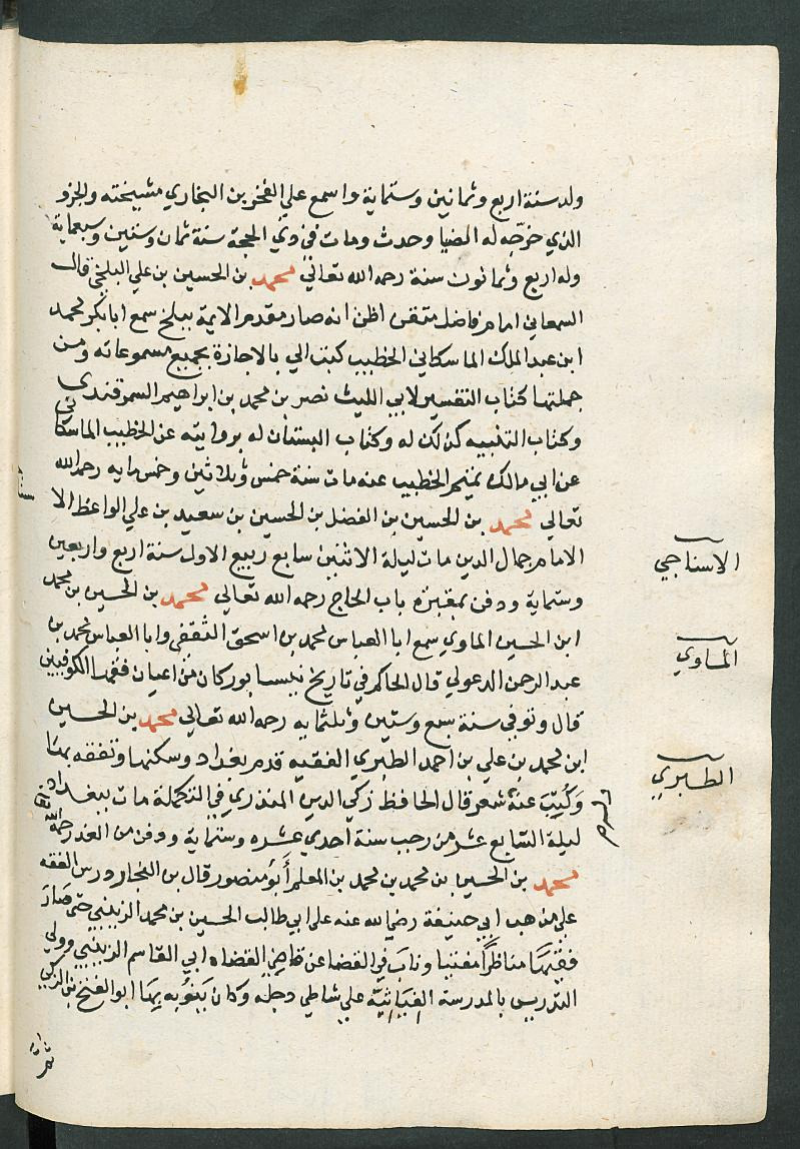 ولد سنة اربع وثمانين وستماية واسمع علي الفخر بن البخاري مشيخته والجزو
الذي خرّجه له الضيا وحدث ومات في ذي الحجة سنة ثمان وستين وسبعماية
وله اربع وثمانون سنة رحمه الله تعالي محمد بن الحسين بن علي البلخي قال
السمعاني امام فاضل متقن اظن انه صار مقدم الايمة ببلخ سمع ابا بكر محمد
ابن عبد الملك الماسكاني الخطيب كتب الي بالاجازة بجميع مسموعاته ومن
جملتها كتاب التفسير لابي الليث نصر بن محمد بن ابراهيم السمرقندي
وكتاب التنبيه كذلك له وكتاب البستان له بروايته عن الخطيب الماسكاني
عن ابي مالك تميم الخطيب عنه مات سنة خمس وثلاثين وخمسمايه رحمه الله
تعالي محمد بن الحسين بن الفضل بن الحسين بن سعيد بن علي الواعظ الا
الامام جمال الدين مات ليلة الاثنين سابع ربيع الاول سنة اربع واربعين
وستماية ودفن بمقبرة باب الحاج رحمه الله تعالي محمد بن الحسين بن محمد
ابن الحسين الماوي سمع ابا العباس محمد بن اسحق الثقفي وابا العباس محمد بن
عبد الرحمن الدعولي قال الحاكم في تاريخ نيسابور كان من اعيان فقها الكوفيين
قال وتوفي سنة سبع وستين وثلثمايه رحمه الله تعالي محمد بن الحسين
ابن محمد بن علي بن احمد الطبري الفقيه قدم بغداد وسكنها وتفقه بها
وكُتِبَ عنهُ شعر قال الحافظ زكي الدين المنذري في التكملة مات ببغداد
ليلة السّابع عشر من رجب سنة احدي عشره وستماية ودفن من الغد رحمه الله
محمد بن الحسين بن محمد بن محمد بن المعلم أبو منصور قال بن النجار درس الفقه
علي مذهب ابي حنيفة رضي الله عنه علي ابي طالب الحسين بن محمد الزينبي حتي صَارَ
فقيهًا مناظراً مفتيا ونابَ في القضا عن قاضي القضاه ابي القاسم الزينبي وولي
التدريس بالمدرسة الغياثيّة علي شاطي دجله وكان ينوُبه بها ابو الفتح بن الزكي
الاسناجي
الماوي
الطبري